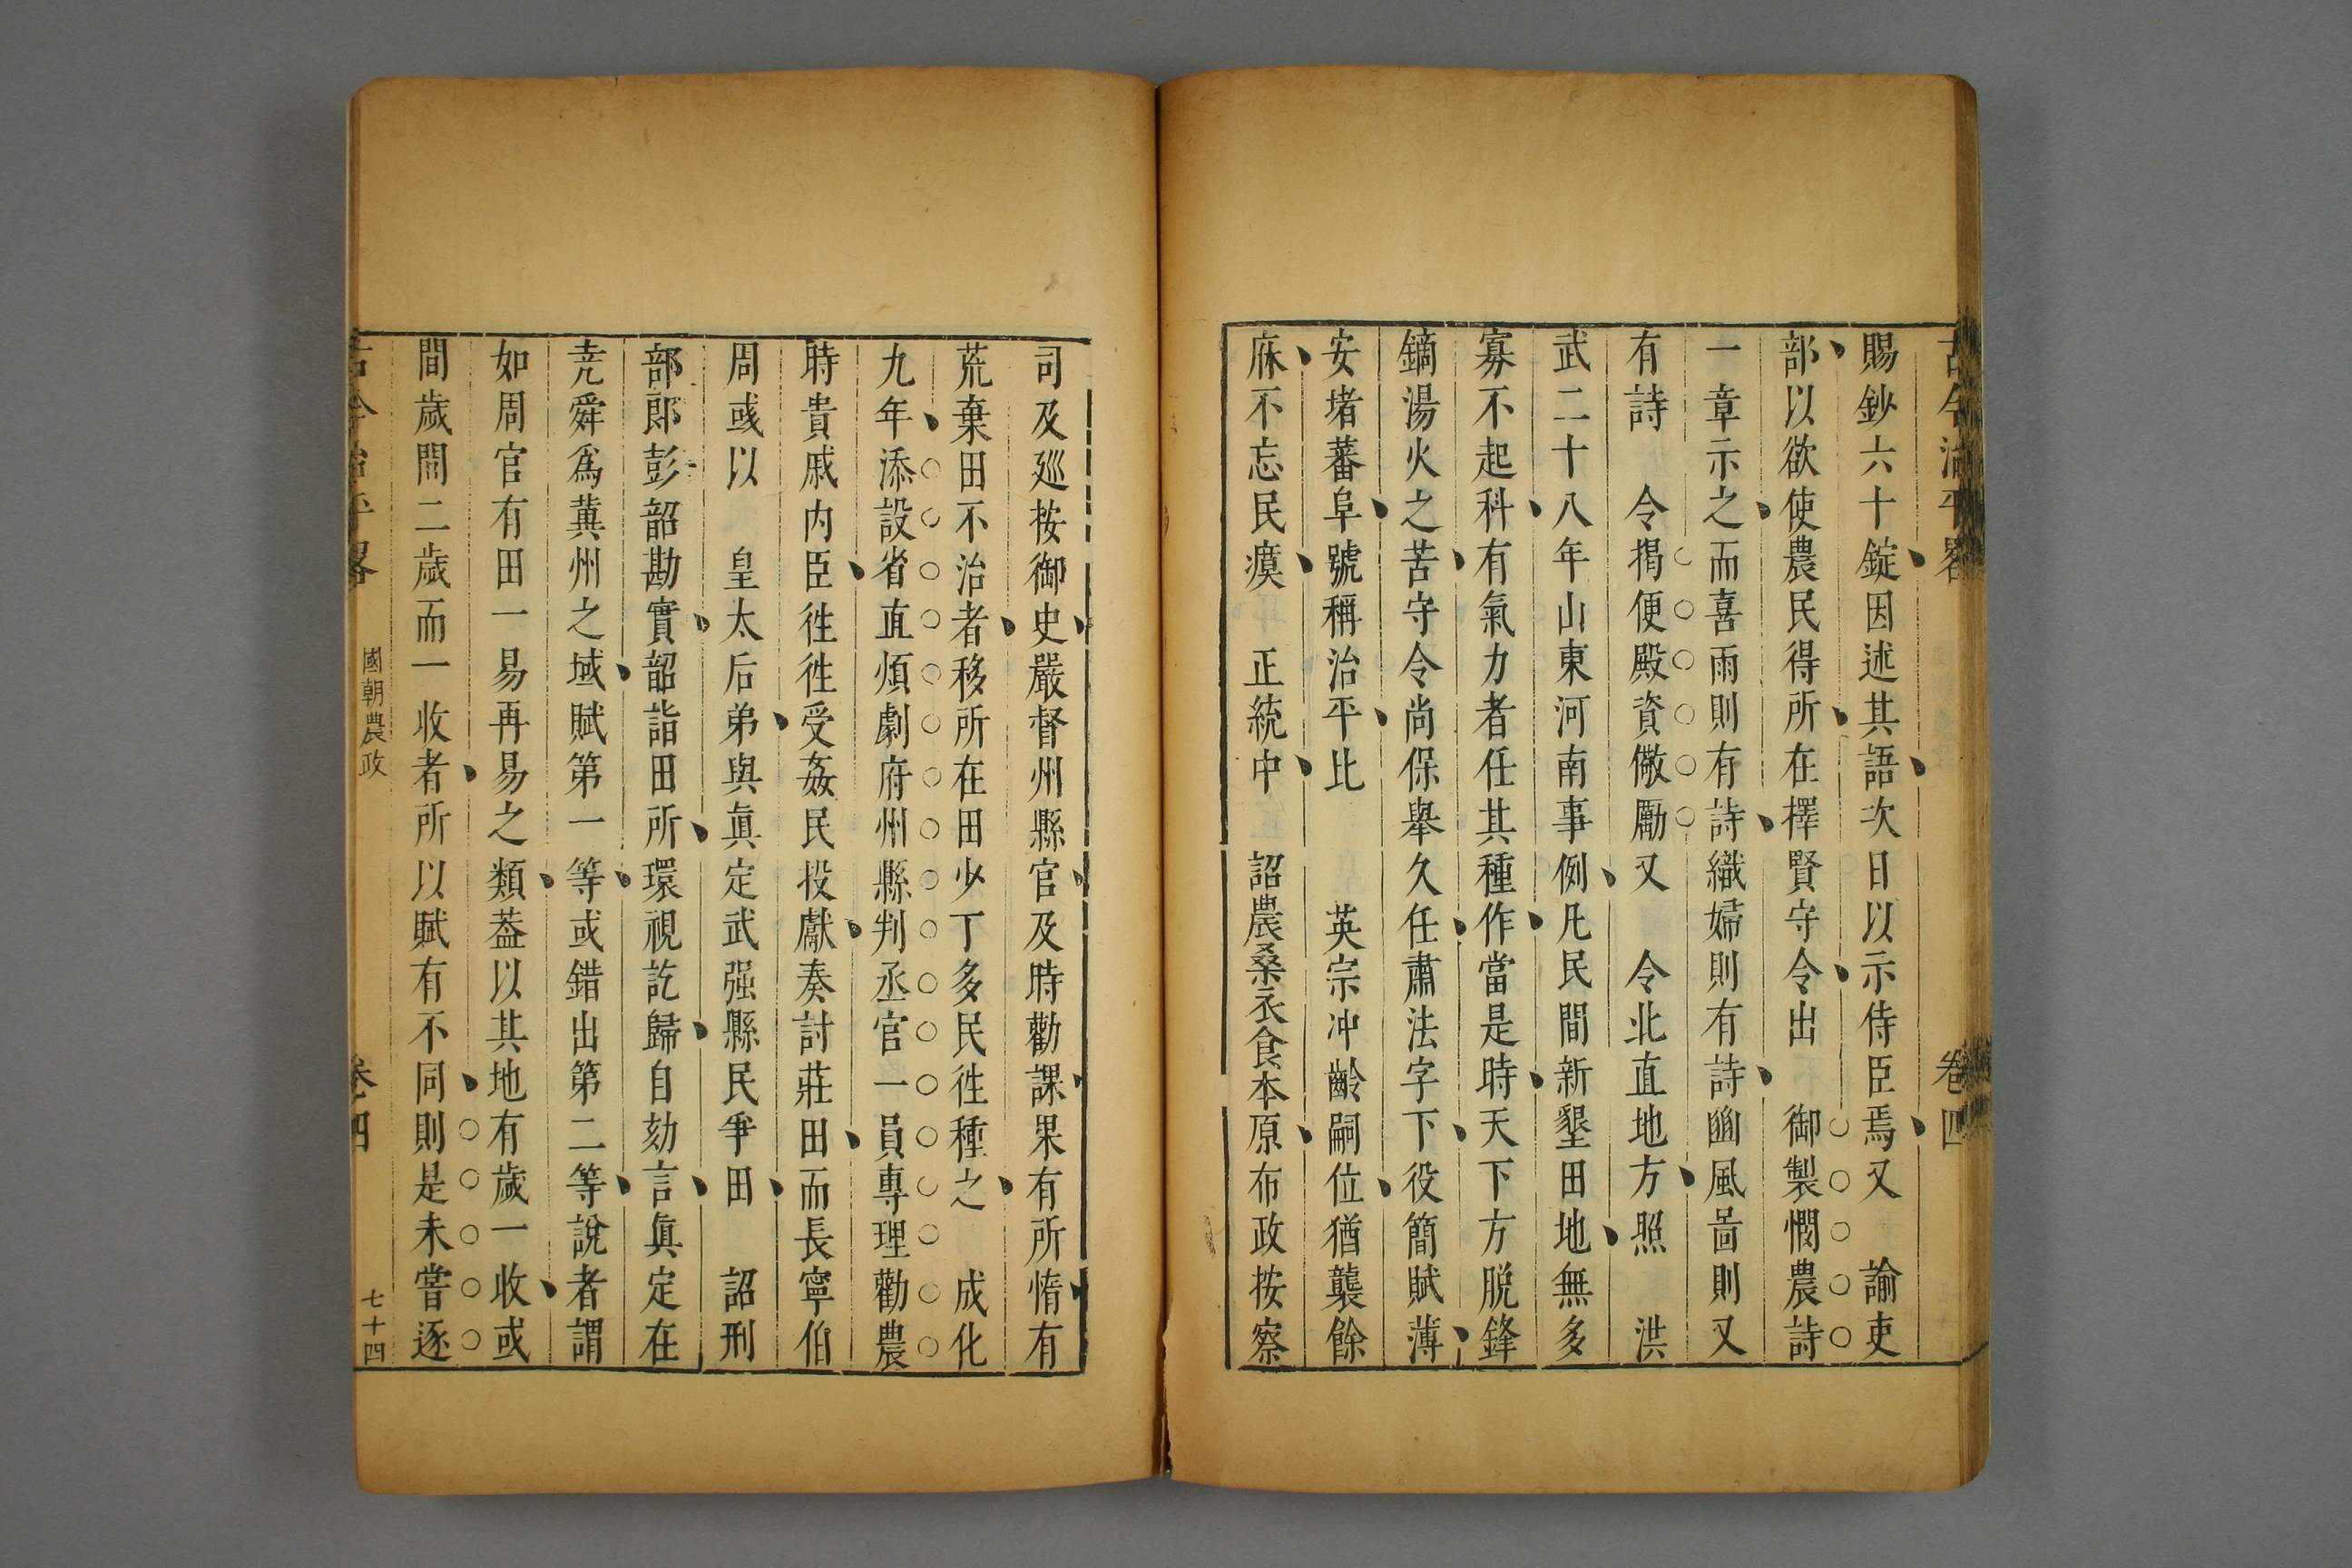 古今治平畧 卷四
賜鈔六十錠因述其語次日以示侍臣焉又 諭吏
部以欲使農民得所在擇賢守令出 御製憫農詩
一章示之而喜雨則有詩織婦則有詩豳風啚則又
有詩 令揭便殿資儆勵又 令北直地方照 洪
武二十八年山東河南事例凡民間新墾田地無多
寡不起科有氣力者任其種作當是時天下方脱鋒
鏑湯火之苦守令尚保舉久任肅法字下役簡賦薄
安堵蕃阜號稱治平比 英宗冲齡嗣位猶襲餘
庥不忘民瘼 正統中 詔農桑衣食本原布政按察
司及廵按御史嚴督州縣官及時勸課果有所惰有
荒棄田不治者移所在田少丁多民徃種之 成化
九年添設省直煩劇府州縣判丞官一員專理勸農
時貴戚内臣徃徃受姦民投獻奏討莊田而長寧伯
周彧以 皇太后弟與眞定武强縣民爭田 詔刑
部郎彭韶勘實韶詣田所環視訖歸自劾言眞定在
尭舜爲冀州之域賦第一等或錯出第二等說者謂
如周官有田一易再易之類葢以其地有歲一收或
間歲閒二歲而一收者所以賦有不同則是未嘗逐
古今治平畧 國朝農政 卷四 七十四